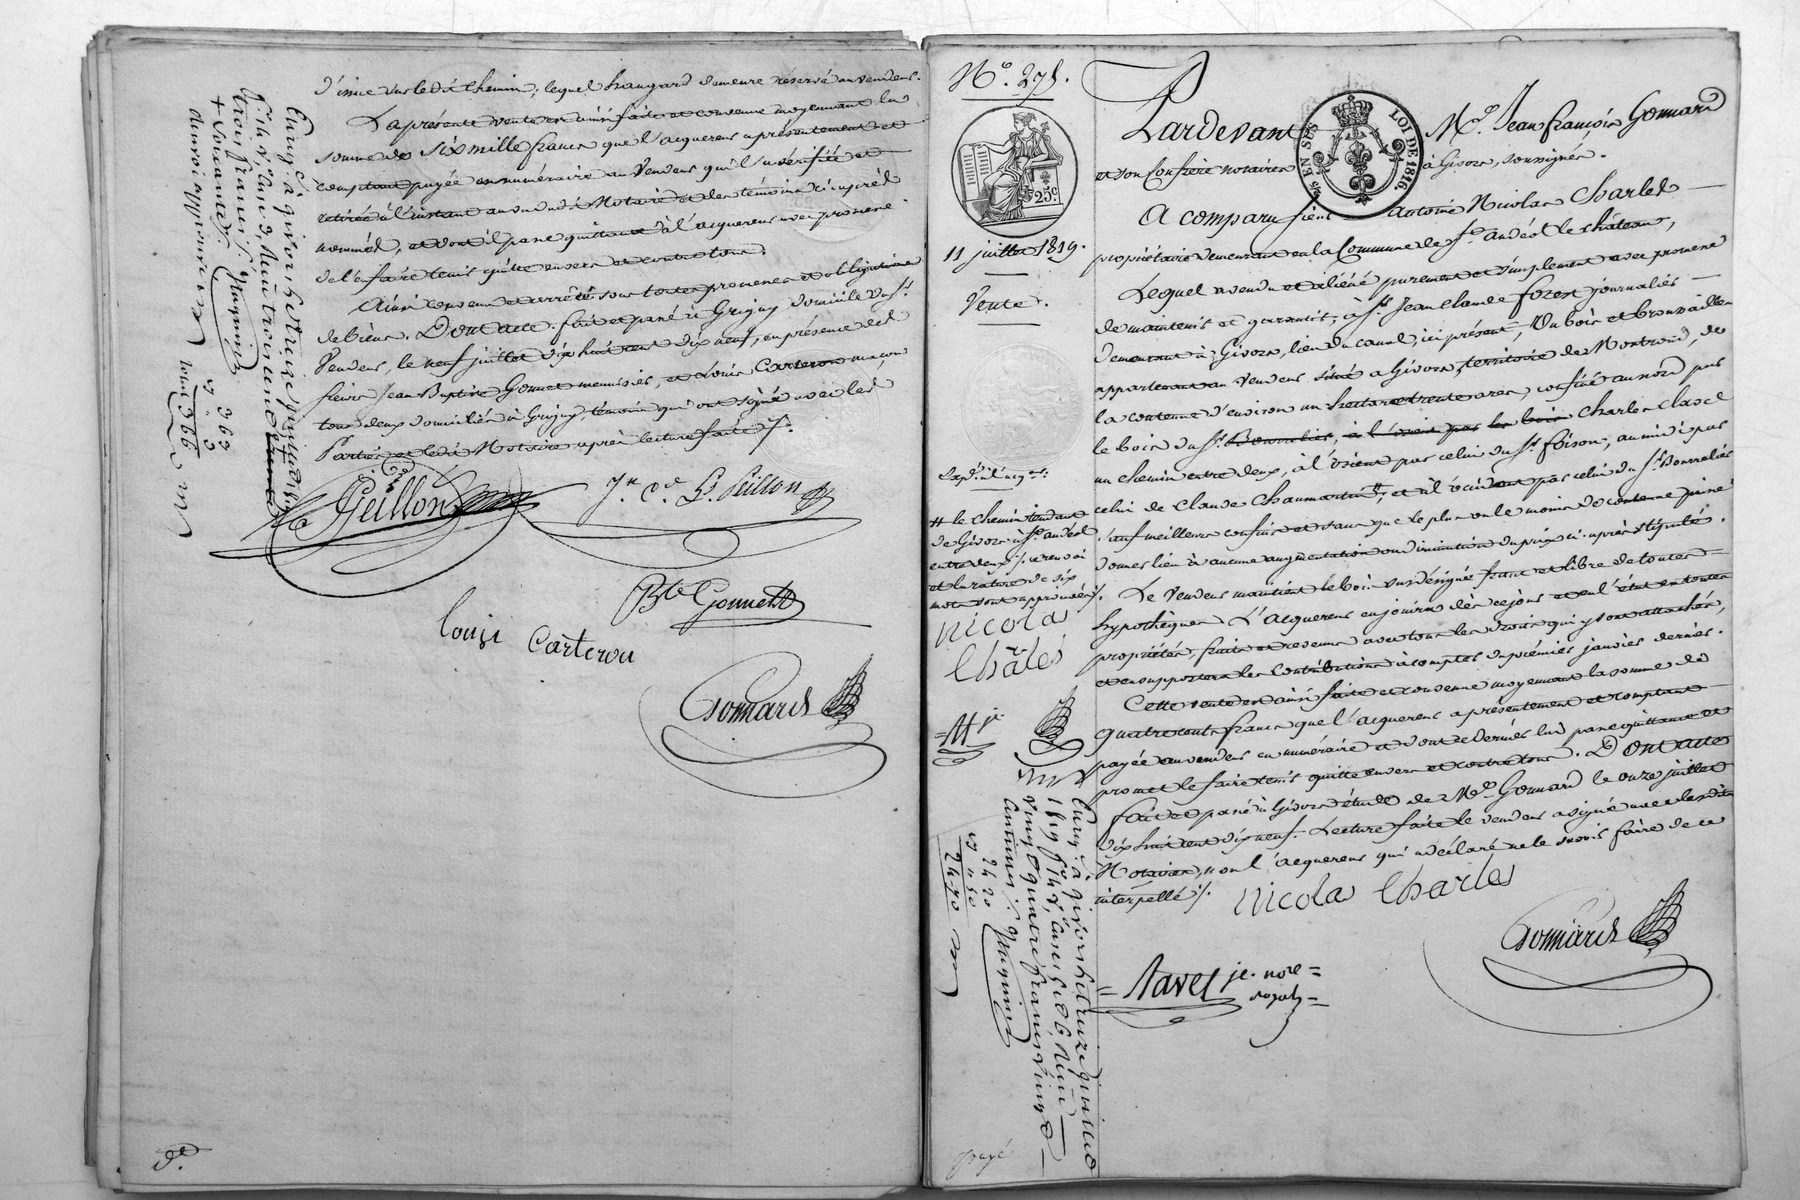 d'issue sur le dit chemin; lequel hangard demeure réservé au vendeur.
La présente vente est ainsi faite et convenue moyennant la
somme de Six mille francs que l'acquereur a présentement et
comptant payée en numéraire au Vendeur qui l'a vérifiée et
retirée à l'instant au vu du dit Notaire et des témoins ci après
nommés, et dont il passe quittance à l'acquereur avec promesse
de l'en faire tenir quitte envers et contre tous.
Ainsi convenu et arrêté sous toutes promesses et obligations
de biens. Dont acte. fait et passé à Grigny domicile du Sr.
Vendeur, le neuf juillet dix huit cent dix neuf, en présence des
sieurs Jean Baptiste Gonnet menuisier, et Louis Carteron maçon
tous deux domiciliés à Grigny, témoins qui ont signé avec les
Parties et le dit Notaire après lecture faite ./.
Peillon
Bte Gonnet
Louis Carteron
Gonnard
Enreg. à givors le treize juillet 1819
trois francs
N.º 275.
25.c
LOI DE 1816.
11 juillet 1819.
Vente.
Pardevant Me. Jean françois Gonnard
et son Confrère notaires à Givors, soussignés.
A comparu sieur Antoine Nicolas Charles
propriétaire demeurant en la Commune de St. andéol le château,
Lequel a vendu et aliéné purement et simplement avec promesse
de maintenir et garantir, à Sr. Jean claude forest journalier
demeurant à Givors, lieu du canal, ici présent, Un bois et broussailles
appartenant au vendeur situé à Givors, territoire de Montrond, de
la contenue d'environ un hectare trente ares, confiné au nord par
le bois du Sr. Bourralier, à l'orient par le bois Charles Clasel
un chemin entre deux, à l'orient par celui du Sr. foison, au midi par
celui de Claude Chaumartin #, et à l'occident par celui du Sr. Bourralier
sauf meilleurs confins et sans que le plus ou le moins de contenue puisse
donner lieu à aucune augmentation ou diminution du prix ci-après stipulé.
Le Vendeur maintient le bois susdésigné franc et libre de toutes
hypothèques. L'acquereur en jouira dès ce jour et en l'état en toutes
propriétés, fruits et revenus avec tous les droits qui y sont attachés,
et en supportera les contributions à compter du premier janvier dernier.
Cette vente est ainsi faite et convenue moyennant la somme de
quatre cents francs que l'acquereur a présentement et comptant
payée au vendeur en numéraire et dont ce dernier lui passe quittance et
promet le faire tenir quitte envers et contre tous. Dont acte
fait et passé à Givors étude de Me. Gonnard le onze juillet
dix huit cent dix neuf. Lecture faite le vendeur a signé avec les dits
Notaires, non l'acquereur qui a déclaré ne le savoir faire de ce
interpellé ./.
nicola Charles
Gonnard
Navel je. nore
royal
# le chemin tendant
de Givors à St. andéol
entre deux ./. ce renvoi
et la rature de six
mots sont approuvés ./.
nicola
Charles
Enreg. à givors le treize juillet
1819
vingt quatre francs vingt
centimes
24 20
2 42
payé